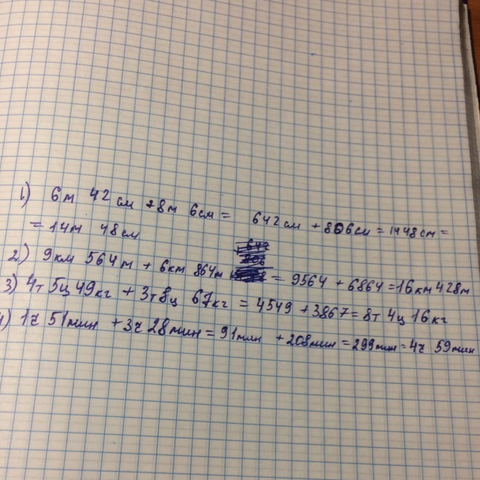 1) 6м 42см +8м 6см = 642см +806см = 1448см =
= 14м 48см
2) 9км 564м + 6км 864м = 9564 + 6864 = 16км 428м
3) 4т 5ц 49кг + 3т 8ц 67кг = 4549 + 3867 = 8т 4ц 16кг
4) 1ч 51мин + 3ч 28мин = 91мин + 208мин = 299мин = 4ч 59мин